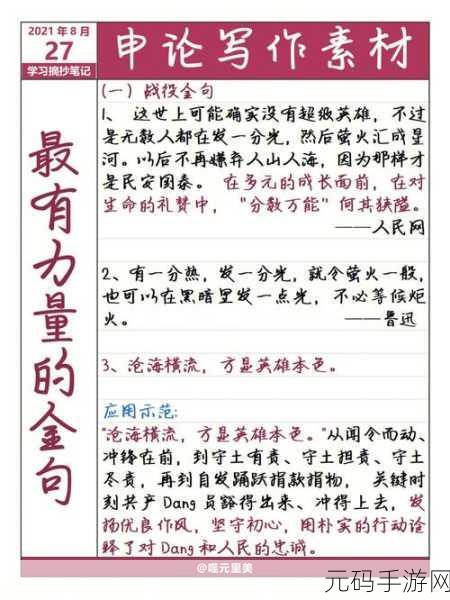 2021年8月
27
学习摘抄笔记
申论写作素材
最有力量的金句
(一) 战役金句
1、这世上可能确实没有超级英雄，不过
是无数人都在发一分光，然后萤火汇成星
河。以后不再嫌弃人山人海，因为那样才
是民安国泰。在多元的成长面前，在对
生命的礼赞中，“分数万能”何其狭隘。
——人民网
2、有一分热，发一分光，就令萤火一般，
也可以在黑暗里发一点光，不必等候炬
火。 ——鲁迅
3、沧海横流，方显英雄本色。
应用示范:
“沧海横流，方显英雄本色。”从闻令而动、
冲锋在前，到守土有责、守土担责、守土
尽责，再到自发踊跃捐款捐物，关键时
刻共产Dang员豁得出来、冲得上去，发
扬优良作风，坚守初心，用朴实的行动诠
释了对Dang和人民的忠诚。
@喔元里美
元码手游网